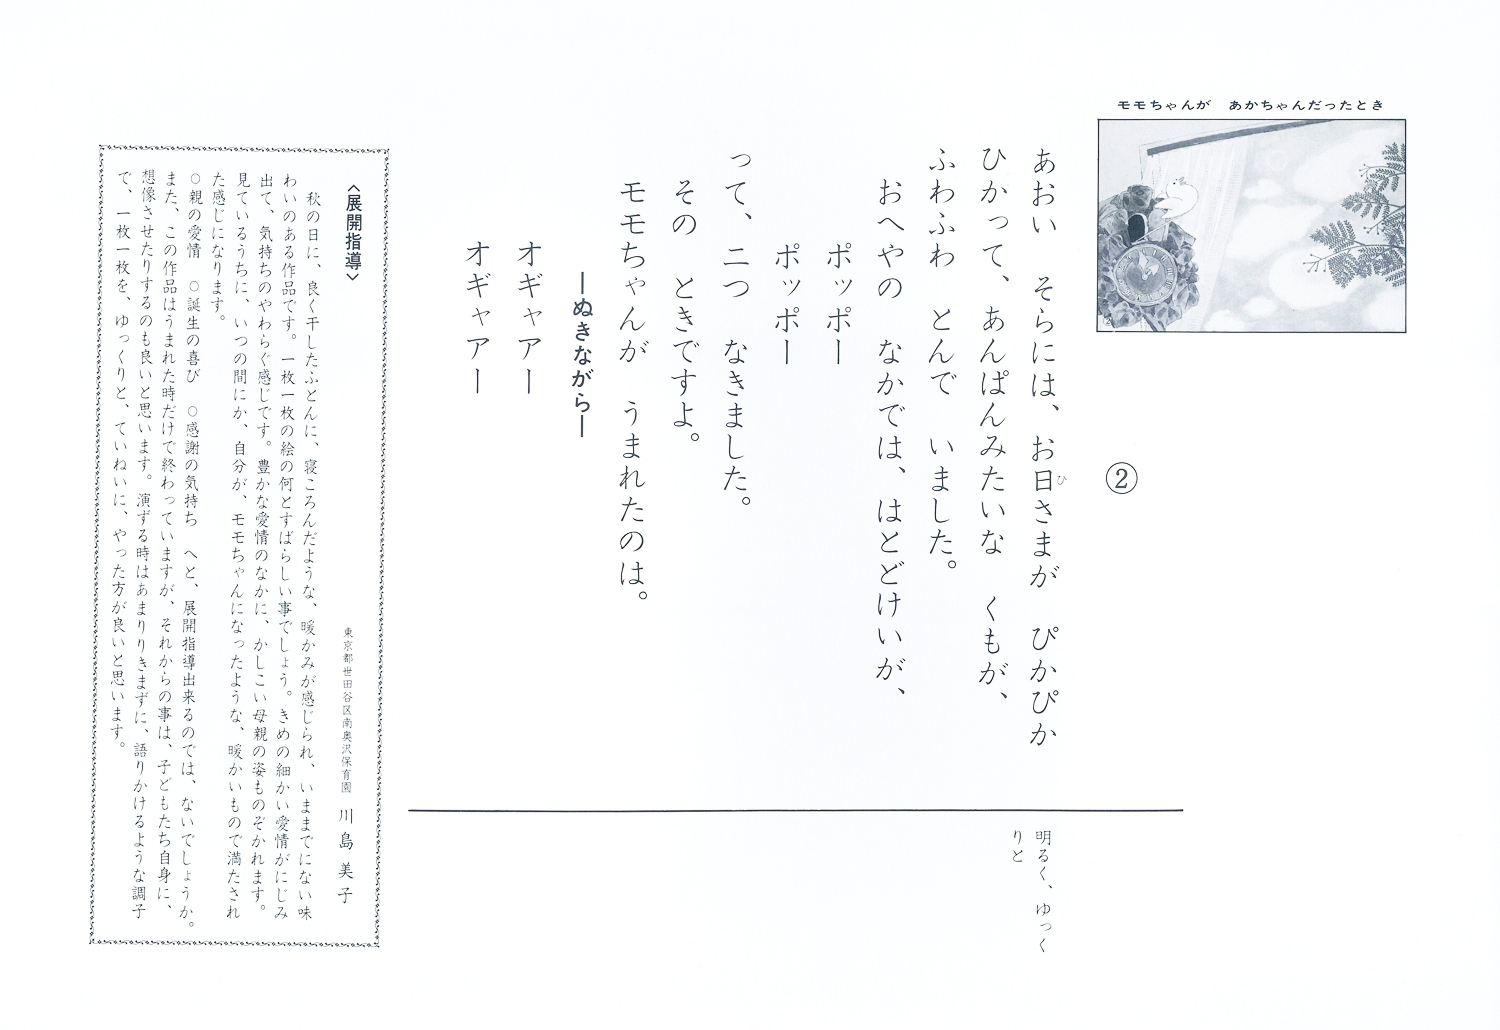 モモちゃんが　あかちゃんだったとき
②
あおい　そらには、お日さまが　ぴかぴか
ひ
ひかって、あんぱんみたいな　くもが、
ふわふわ　とんで　いました。
おへやの　なかでは、はとどけいが、
ポッポー
ポッポー
って、二つ　なきました。
その　ときですよ。
モモちゃんが　うまれたのは。
―ぬきながら―
オギャアー
オギャアー
明るく、ゆっく
りと
〈展開指導〉
東京都世田谷区南奥沢保育園　川島美子
秋の日に、良く干したふとんに、寝ころんだような、暖かみが感じられ、いままでにない味
わいのある作品です。一枚一枚の絵の何とすばらしい事でしょう。きめの細かい愛情がにじみ
出て、気持ちのやわらぐ感じです。豊かな愛情のなかに、かしこい母親の姿ものぞかれます。
見ているうちに、いつの間にか、自分が、モモちゃんになったような、暖かいもので満たされ
た感じになります。
○親の愛情　○誕生の喜び　○感謝の気持ち　へと、展開指導出来るのでは、ないでしょうか。
また、この作品はうまれた時だけで終わっていますが、それからの事は、子どもたち自身に、
想像させたりするのも良いと思います。演ずる時はあまりりきまずに、語りかけるような調子
で、一枚一枚を、ゆっくりと、ていねいに、やった方が良いと思います。